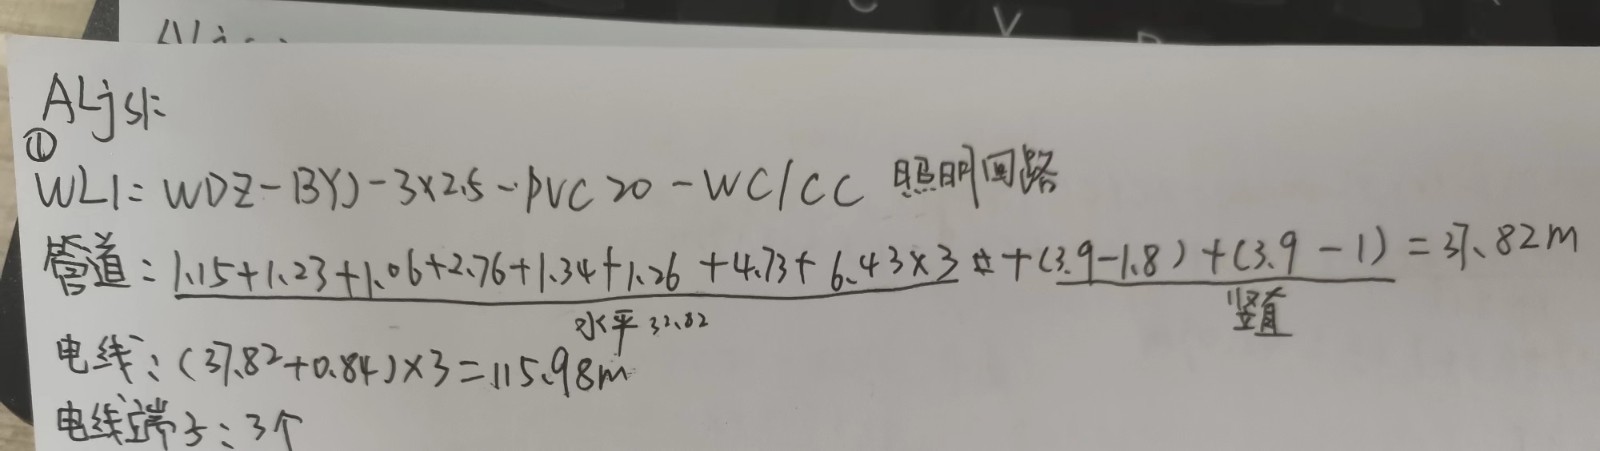 ALjs1:
①
WL1: WDZ-BYJ-3×2.5-PVC20-WC/CC 照明回路
管道: 1.15+1.23+1.06+2.76+1.34+1.26+4.73+6.43×3+(3.9-1.8)+(3.9-1)=37.82m
水平 32.82
竖直
电线: (37.82+0.84)×3=115.98m
电线端子: 3个